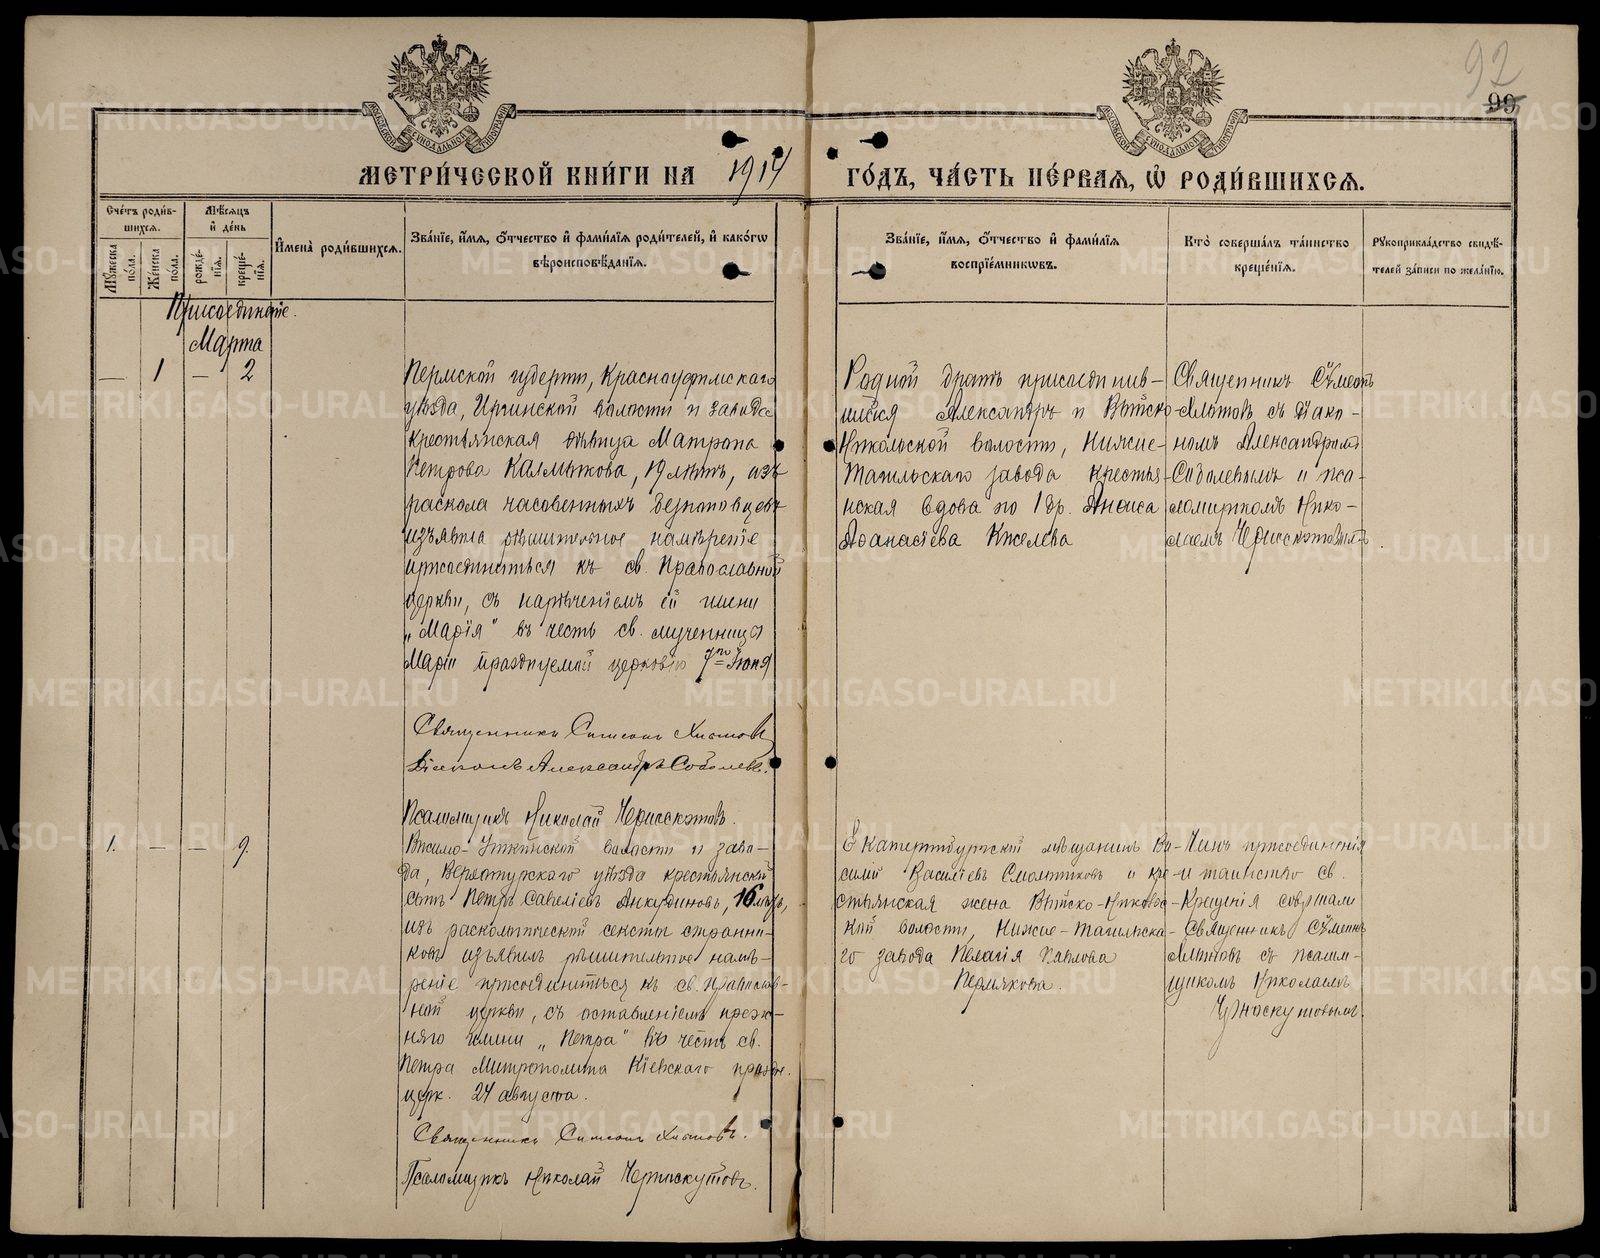 92
99
МОСКОВСКОЙ СѴНОДАЛЬНОЙ ТИПОГРАФІИ
МОСКОВСКОЙ СѴНОДАЛЬНОЙ ТИПОГРАФІИ
МЕТРИ́ЧЕСКОЙ КНИ́ГИ НА 1914 ГО́ДЪ, ЧА́СТЬ ПЕ́РВАѦ, Ѡ҆ РОДИ́ВШИХСѦ.
Сче́тъ роди́в-
шихсѧ.
Мꙋ́жеска по́ла.
Же́нска по́ла.
Мѣ́сѧцъ и҆ де́нь
рожде́-
нїѧ.
креще́-
нїѧ.
И҆мена̀ роди́вшихсѧ.
Зва́нїе, и҆́мѧ, ѻ҆́тчество и҆ фами́лїѧ роди́телей, и҆ како́гѡ
вѣроисповѣ́данїѧ.
Зва́нїе, и҆́мѧ, ѻ҆́тчество и҆ фами́лїѧ
воспрїе́мникѡвъ.
Кто̀ соверша́лъ та́инство
креще́нїѧ.
Рꙋкоприкла́дство свидѣ́-
телей за́писи по жела́нїю.
Присоединеніе.
Марта
— 1 — 2
Пермской губерн, Красноуфимскаго
уѣзда, Иргинской волости и завода
крестьянская дѣвица Матрона
Петрова Калмыкова, 19 лѣтъ, изъ
раскола часовенныхъ безпоповцевъ
изъявила рѣшительное намѣреніе
присоединиться къ св. Православной
церкви, съ нареченіемъ ей имени
„Марія" въ честь св. мученницы
Маріи празднуемой церковію 7го Іюня
Священникъ Симеонъ Хлытовъ
Діаконъ Александръ Соболевъ.
Псаломщикъ Николай Черноскутовъ.
Родной братъ присоединив-
шейся Александръ и Выйско-
Никольской волости, Нижне-
Тагильскаго завода крестья-
нская вдова по 1 бр. Анфиса
Афанасіева Киселева
Священникъ Сѵмеонъ
Хлытовъ съ діако-
номъ Александромъ
Соболевымъ и пса-
ломщикомъ Нико-
лаемъ Черноскутовымъ.
1. — — 9.
Висимо-Уткинской волости и заво-
да, Верхотурскаго уѣзда крестьянскій
сынъ Петръ Савеліевъ Анкудиновъ, 16 лѣтъ,
изъ раскольнической секты странни-
ковъ изъявилъ рѣшительное намѣ-
реніе присоединиться къ св. православ-
ной церкви, съ оставленіемъ преж-
няго имени „Петра" въ честь св.
Петра Митрополита Кіевскаго праздн.
церк. 24 августа.
Священникъ Симеонъ Хлытовъ.
Псаломщикъ Николай Черноскутовъ.
Екатеринбургскій мѣщанинъ Ва-
силій Василіевъ Смольниковъ и кре-
стьянская жена Выйско-Николь-
кой волости, Нижне-Тагильска-
го завода Пелагія Павлова
Пермякова.
Чинъ присоединенія
и таинство св.
Крещенія совершали
Священникъ Сѵмеонъ
Хлытовъ съ псалом-
щикомъ Николаемъ
Черноскутовымъ.